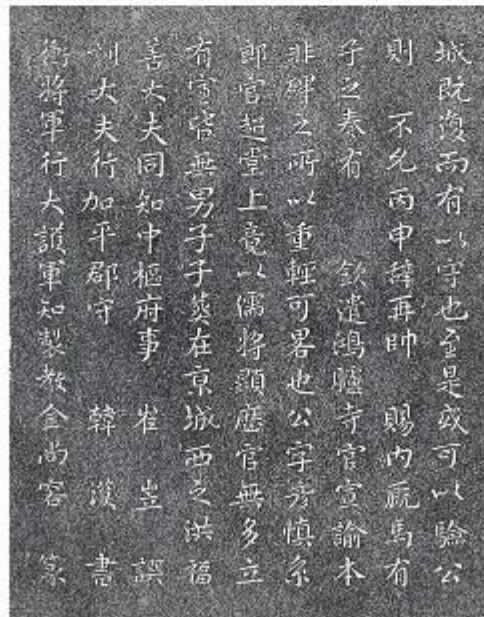 城既復而有以守也至是或可以驗公
則 不允丙申辞再帥 賜內廐馬有
子之奏有 欽遣鴻臚寺官宣諭本
非碑之所以重輕可畧也公字彦慎系
郎官超堂上竟以儒將顯歷官無多立
有室皆無男子子葬在京城西之洪福
善大夫同知中樞府事 崔岦 譔
訓大夫行加平郡守 韓濩 書
衝將軍行大護軍知製教金尚容 篆